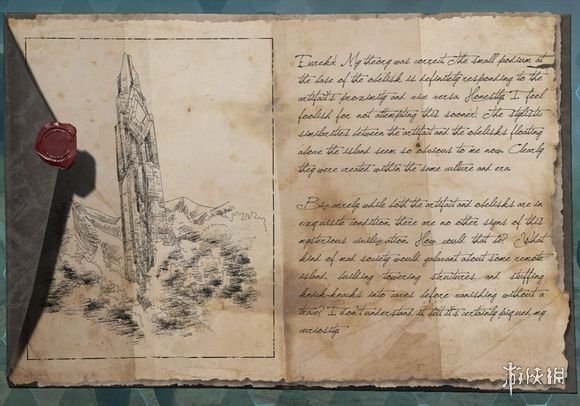 Eureka! My theory was correct. The small podium at
the base of the obelisk is definitely responding to the
artifact's proximity and vice versa. Honestly, I feel
foolish for not attempting this sooner! The stylistic
similarities between the artifact and the obelisks floating
above the island seem so obvious to me now. Clearly
they were created within the same culture and era.
Bizarrely, while both the artifact and obelisks are in
exquisite condition, there are no other signs of this
mysterious civilization. How could that be? What
kind of mad society would galavant about some remote
island, building towering structures and stuffing
knick-knacks into caves before vanishing without a
trace? I don't understand it, but it's certainly piqued my
curiosity.
游侠网